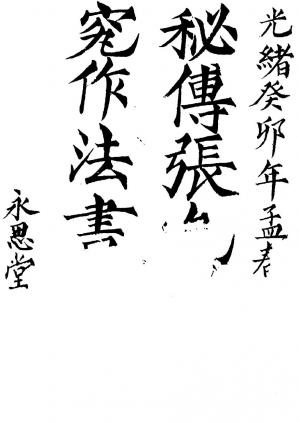 光緒癸卯年孟春
秘傳張
宄作法書
永思堂